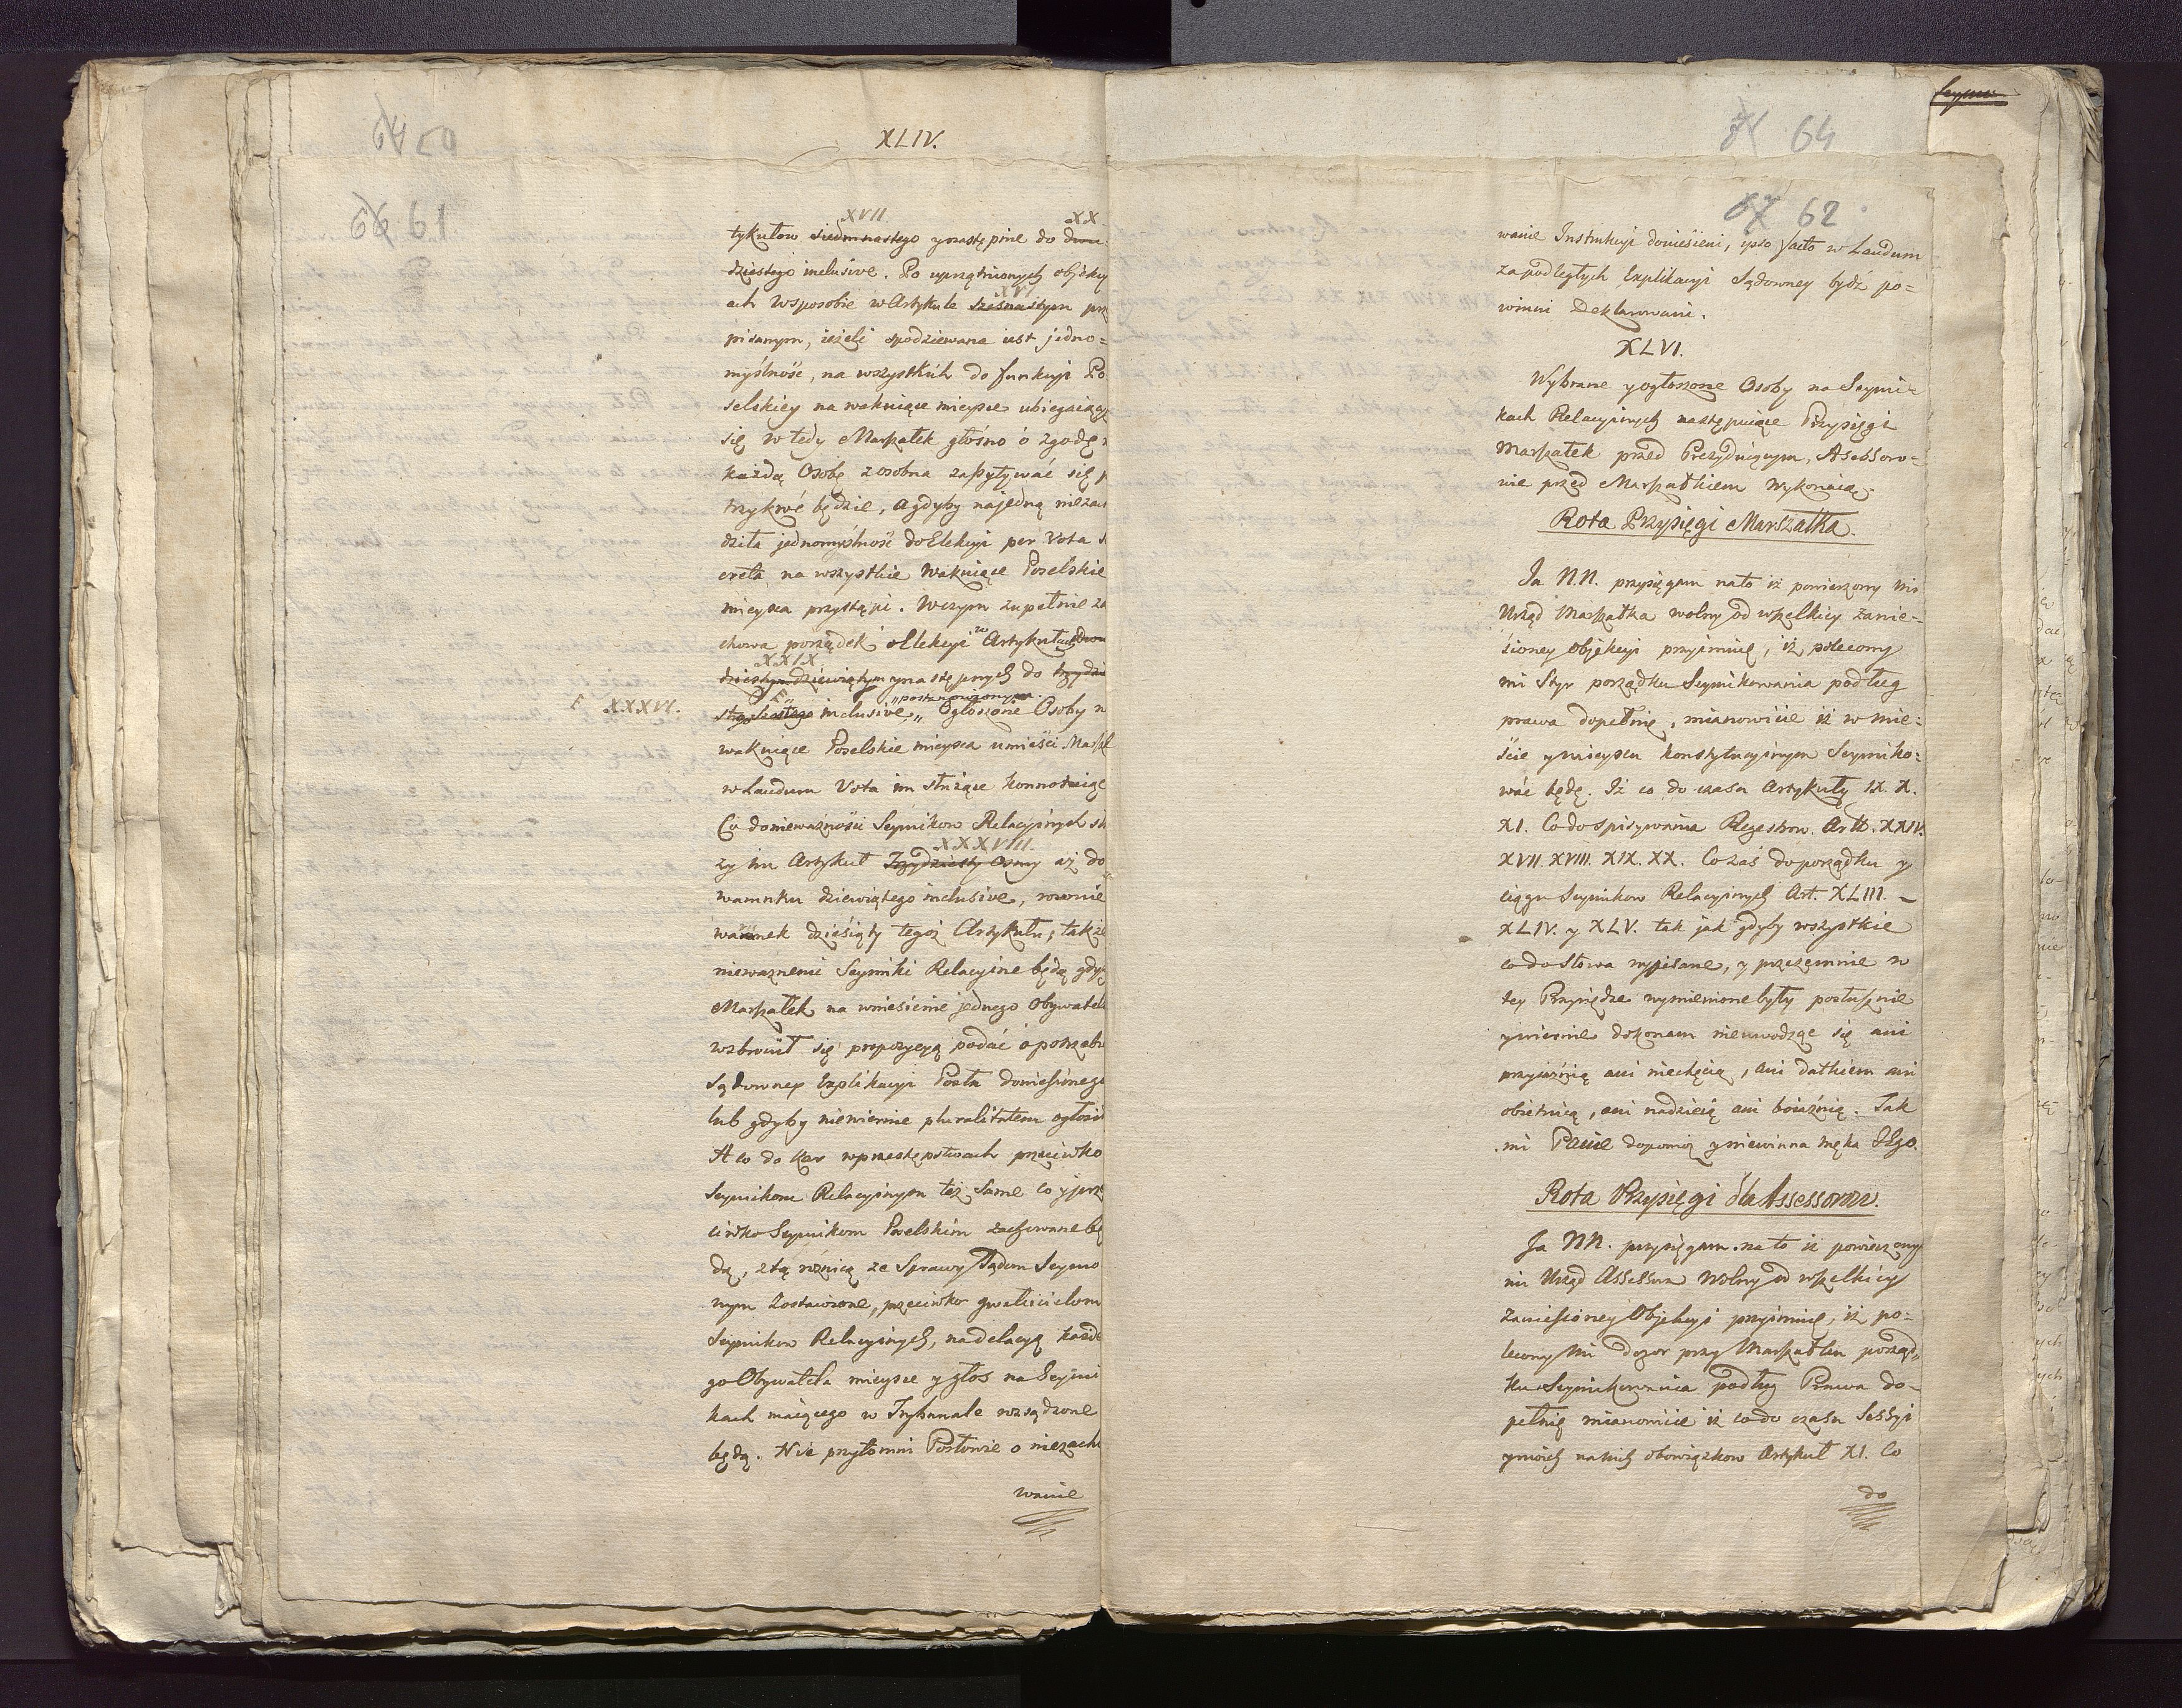 XLIV.
61
XVII XX
tykułow siedmnastego y następne do dwu
dziestego inclusive. Po uprzątnionych objekcy
ach w sposobie w Artykule szesnastym prze
XVI
pisanym, ieżeli spodziewana iest jedno=
myślność, na wszystkich do funkcyi Po
selskiey na wakuiące mieysce ubiegaiący
się w tedy Marszałek głośno o zgodę
każdą Osobę z osobna zapytywać się
trzykroć będzie, a gdyby na jedną niezau
dziła jednomyślność do Elekcyi per Vota
creta na wszystkie wakuiące Poselskie
mieysca przystąpi. W czym zupełnie za
chowa porządek Elekcyi w Artykułach dwu
XXIX
dziestym dziewiątym y następnych do trzydzie
XXXVI. „postanowionym.
stego szostego inclusive, „ Ogłoszone Osoby n
wakuiące Poselskie mieysca umieści Marszał
w Laudum Vota im służące konnotuiąc
Co do nieważności Seymikow Relacyinych słu
XXXVIII.
ży im Artykuł Trzydziesty Osmy aż do
warunku dziewiątego inclusive, rownie
warunek dziesiąty tegoż Artykułu; także
nieważnemi Seymiki Relacyine będą gdyby
Marszałek na wniesienie jednego Obywatela
wzbronił się propozycyą podać o potrzebie
Sądowney Explikacyi Posła doniesionego
lub gdyby niewiernie pluralitatem ogłosił
A co do kar w przestępstwach przeciwko
Seymikom Relacyinym też same co y prze
ciwko Seymikom Poselskim zachowane bę
dą, z tą roźnicą że Sprawy Sądom Seymo
wym zostawione, przeciwko gwałcicielom
Seymikow Relacyinych, na delacyą każde
go Obywatela mieysce y głos na Seymi
kach maiącego w Trybunale rozsądzone
będą. Nie przytomni Posłowie o niezacho
wanie
64
62
wanie Instrukcyi doniesieni, ipso facto w Laudum
za podległych Explikacyi Sądowney bydź po=
winni Deklarowani.
XLVI.
Wybrane y ogłoszone Osoby na Seymi=
kach Relacyinych następuiące Przysięgi
Marszałek przed Prezyduiącym, Assessoro=
wie przed Marszałkiem wykonaią.
Rota Przysięgi Marszałka.
Ja N.N. przysięgam na to iż powierzony mi
Urząd Marszałka wolny od wszelkiey zanie=
sioney Objekcyi przyimuię, iż polecony
mi Styr porządku Seymikowania podług
prawa dopełnię, mianowicie iż w mie=
ście y mieyscu konstytucyinym Seymiko=
wać będę. Iż co do czasu Artykuły IX. X.
XI. Co do spisywania Regestrow Artt. XXIV.
XVII. XVIII. XIX. XX. Co zaś do porządku y
ciągu Seymikow Relacyinych Art. XLIII. –
XLIV. y XLV. tak jak gdyby wszystkie
co do słowa wypisane, y przezemnie w
tey Przysiędze wymienione były posłusznie
y wiernie dokonam nieuwodząc się ani
przyiaźnią ani niechęcią, ani datkiem ani
obietnicą, ani nadzieią ani boiaźnią. Tak
mi Panie dopomoż y niewinna męka JEgo.
Rota Przysięgi dla Assessorow.
Ja NN. przysięgam na to iż powierzony
mi Urząd Assessora wolny od wszelkiey
zaniesioney Objekcyi przyimuię, iż po=
lecony mi dozor przy Marszałku porząd„
ku Seymikowania podług Prawa do=
pełnię mianowicie iż co do czasu Sessyi
y moich na nich obowiązkow Artykuł XI. Co
do